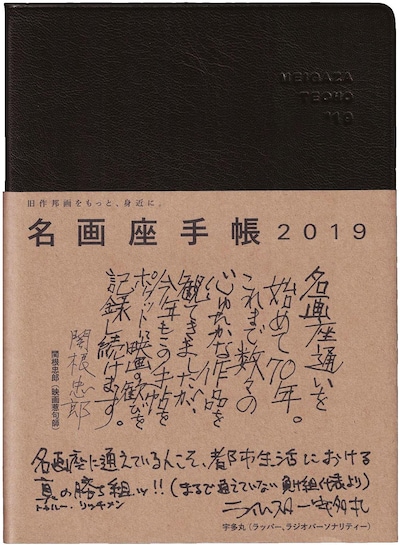 MEIGAZA
TECHO
'19
旧作邦画をもっと、身近に。
名画座手帳2019
名画座通いを
始めて70年。
これまで数々の
作品を
観てきましたが、
今年もこの手帖を
ポケットに映画の歓びを
記録し続けます。
関根忠郎
関根忠郎（映画惹句師）
名画座に通えている人こそ、都市生活における
真の勝ち組ッ!!（まるで通えていない負け組代表より）
トゥルー・リッチメン
ライムスター宇多丸
宇多丸（ラッパー、ラジオパーソナリティー）